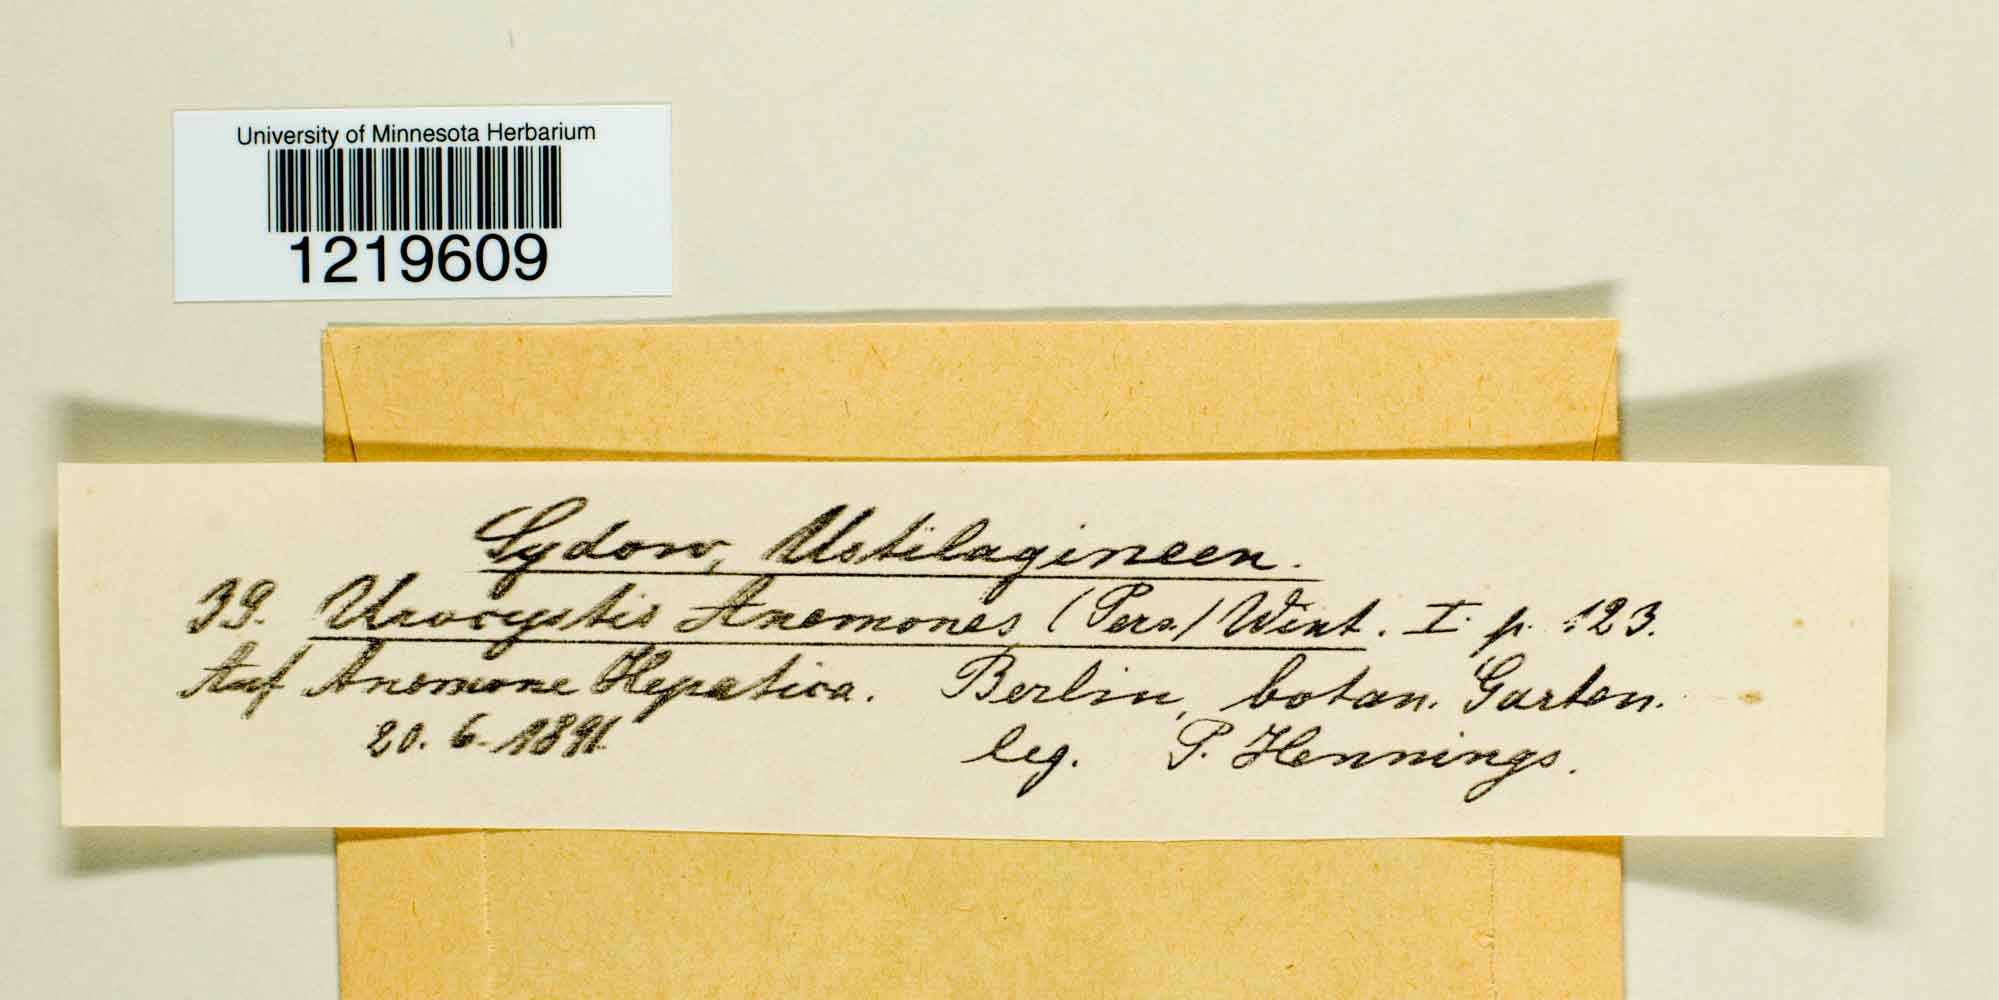 University of Minnesota Herbarium
1219609
Sydow, Ustilagineen.
39. Urocystis Anemones (Pers.) Wint. I. p. 123.
Auf Anemone Hepatica. Berlin, botan. Garten.
20. 6. 1891. leg. P. Hennings.